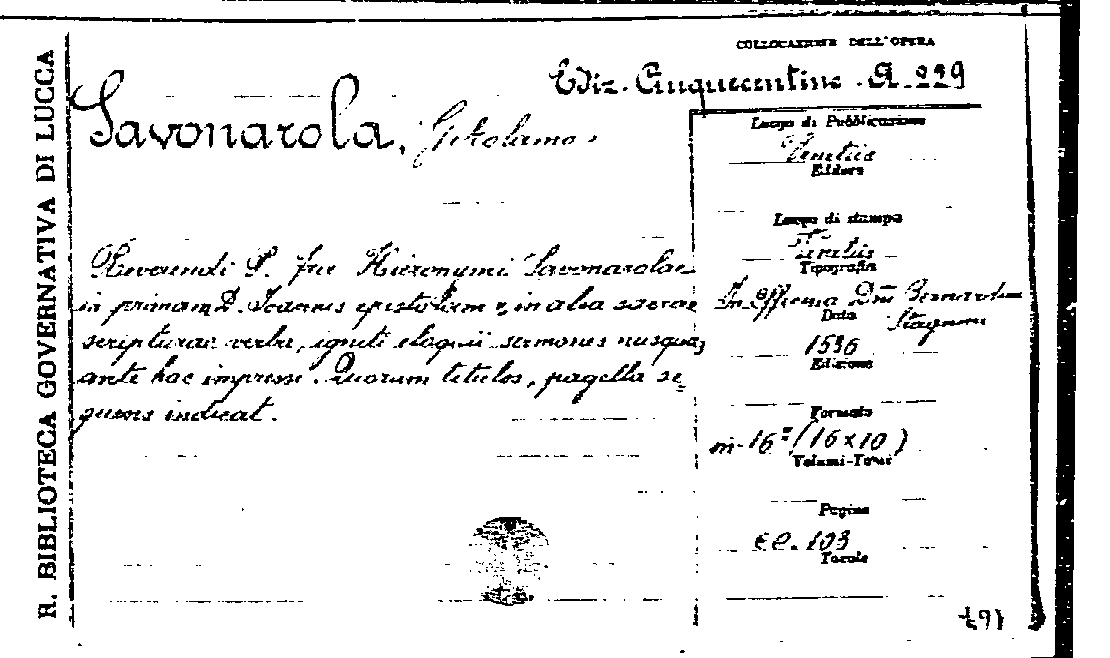 R. BIBLIOTECA GOVERNATIVA DI LUCCA
COLLOCAZIONE DELL'OPERA
Ediz. Cinquecentine. A. 229
Savonarola, Girolamo.
Luogo di Pubblicazione
Venetiis
Editore
Luogo di stampa
Venetiis
Tipografia
In officina Dni Bernardini
Stagnini
Data
1536
Edizione
Formato
in-16º (16x10)
Volumi-Tomi
Pagine
cc. 103
Tavole
Reverendi P. fra Hieronymi Savonarolae
in primam D. Joannis epistolam et in alia sacrae
scripturae verba, igniti eloquii sermones nusquā
ante hac impressi. Quorum titulos, pagella se=
quens indicat.